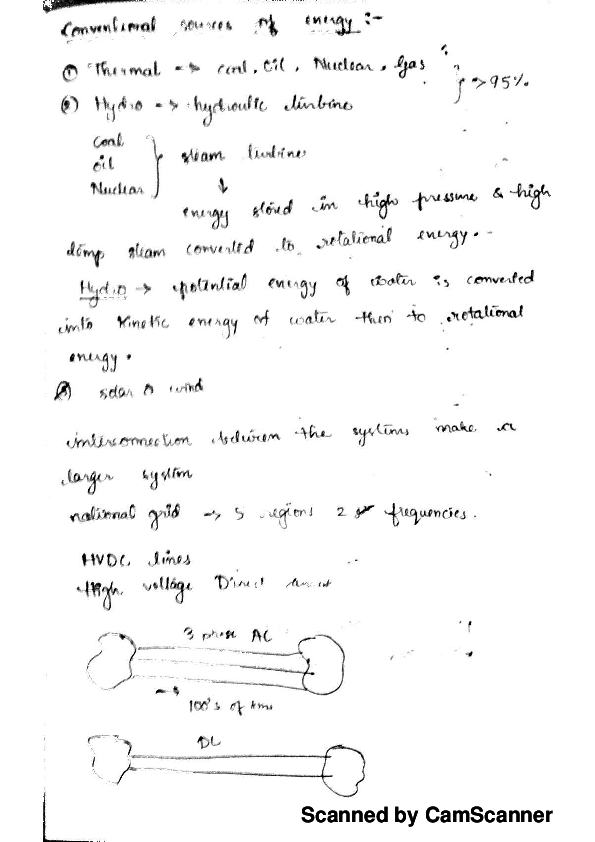 Conventional sources of energy :-
① Thermal → coal, Oil, Nuclear, Gas
② Hydro → hydraulic turbine
} >95%
Coal
oil
Nuclear
} steam turbine
↓
energy stored in high pressure & high
temp steam converted to rotational energy.
Hydro → potential energy of water is converted
into Kinetic energy of water then to rotational
energy.
③ solar & wind
interconnection between the systems make a
larger system
national grid → 5 regions 2 frequencies.
HVDC lines
High voltage Direct
3 phase AC
→
100's of kms
DC
Scanned by CamScanner